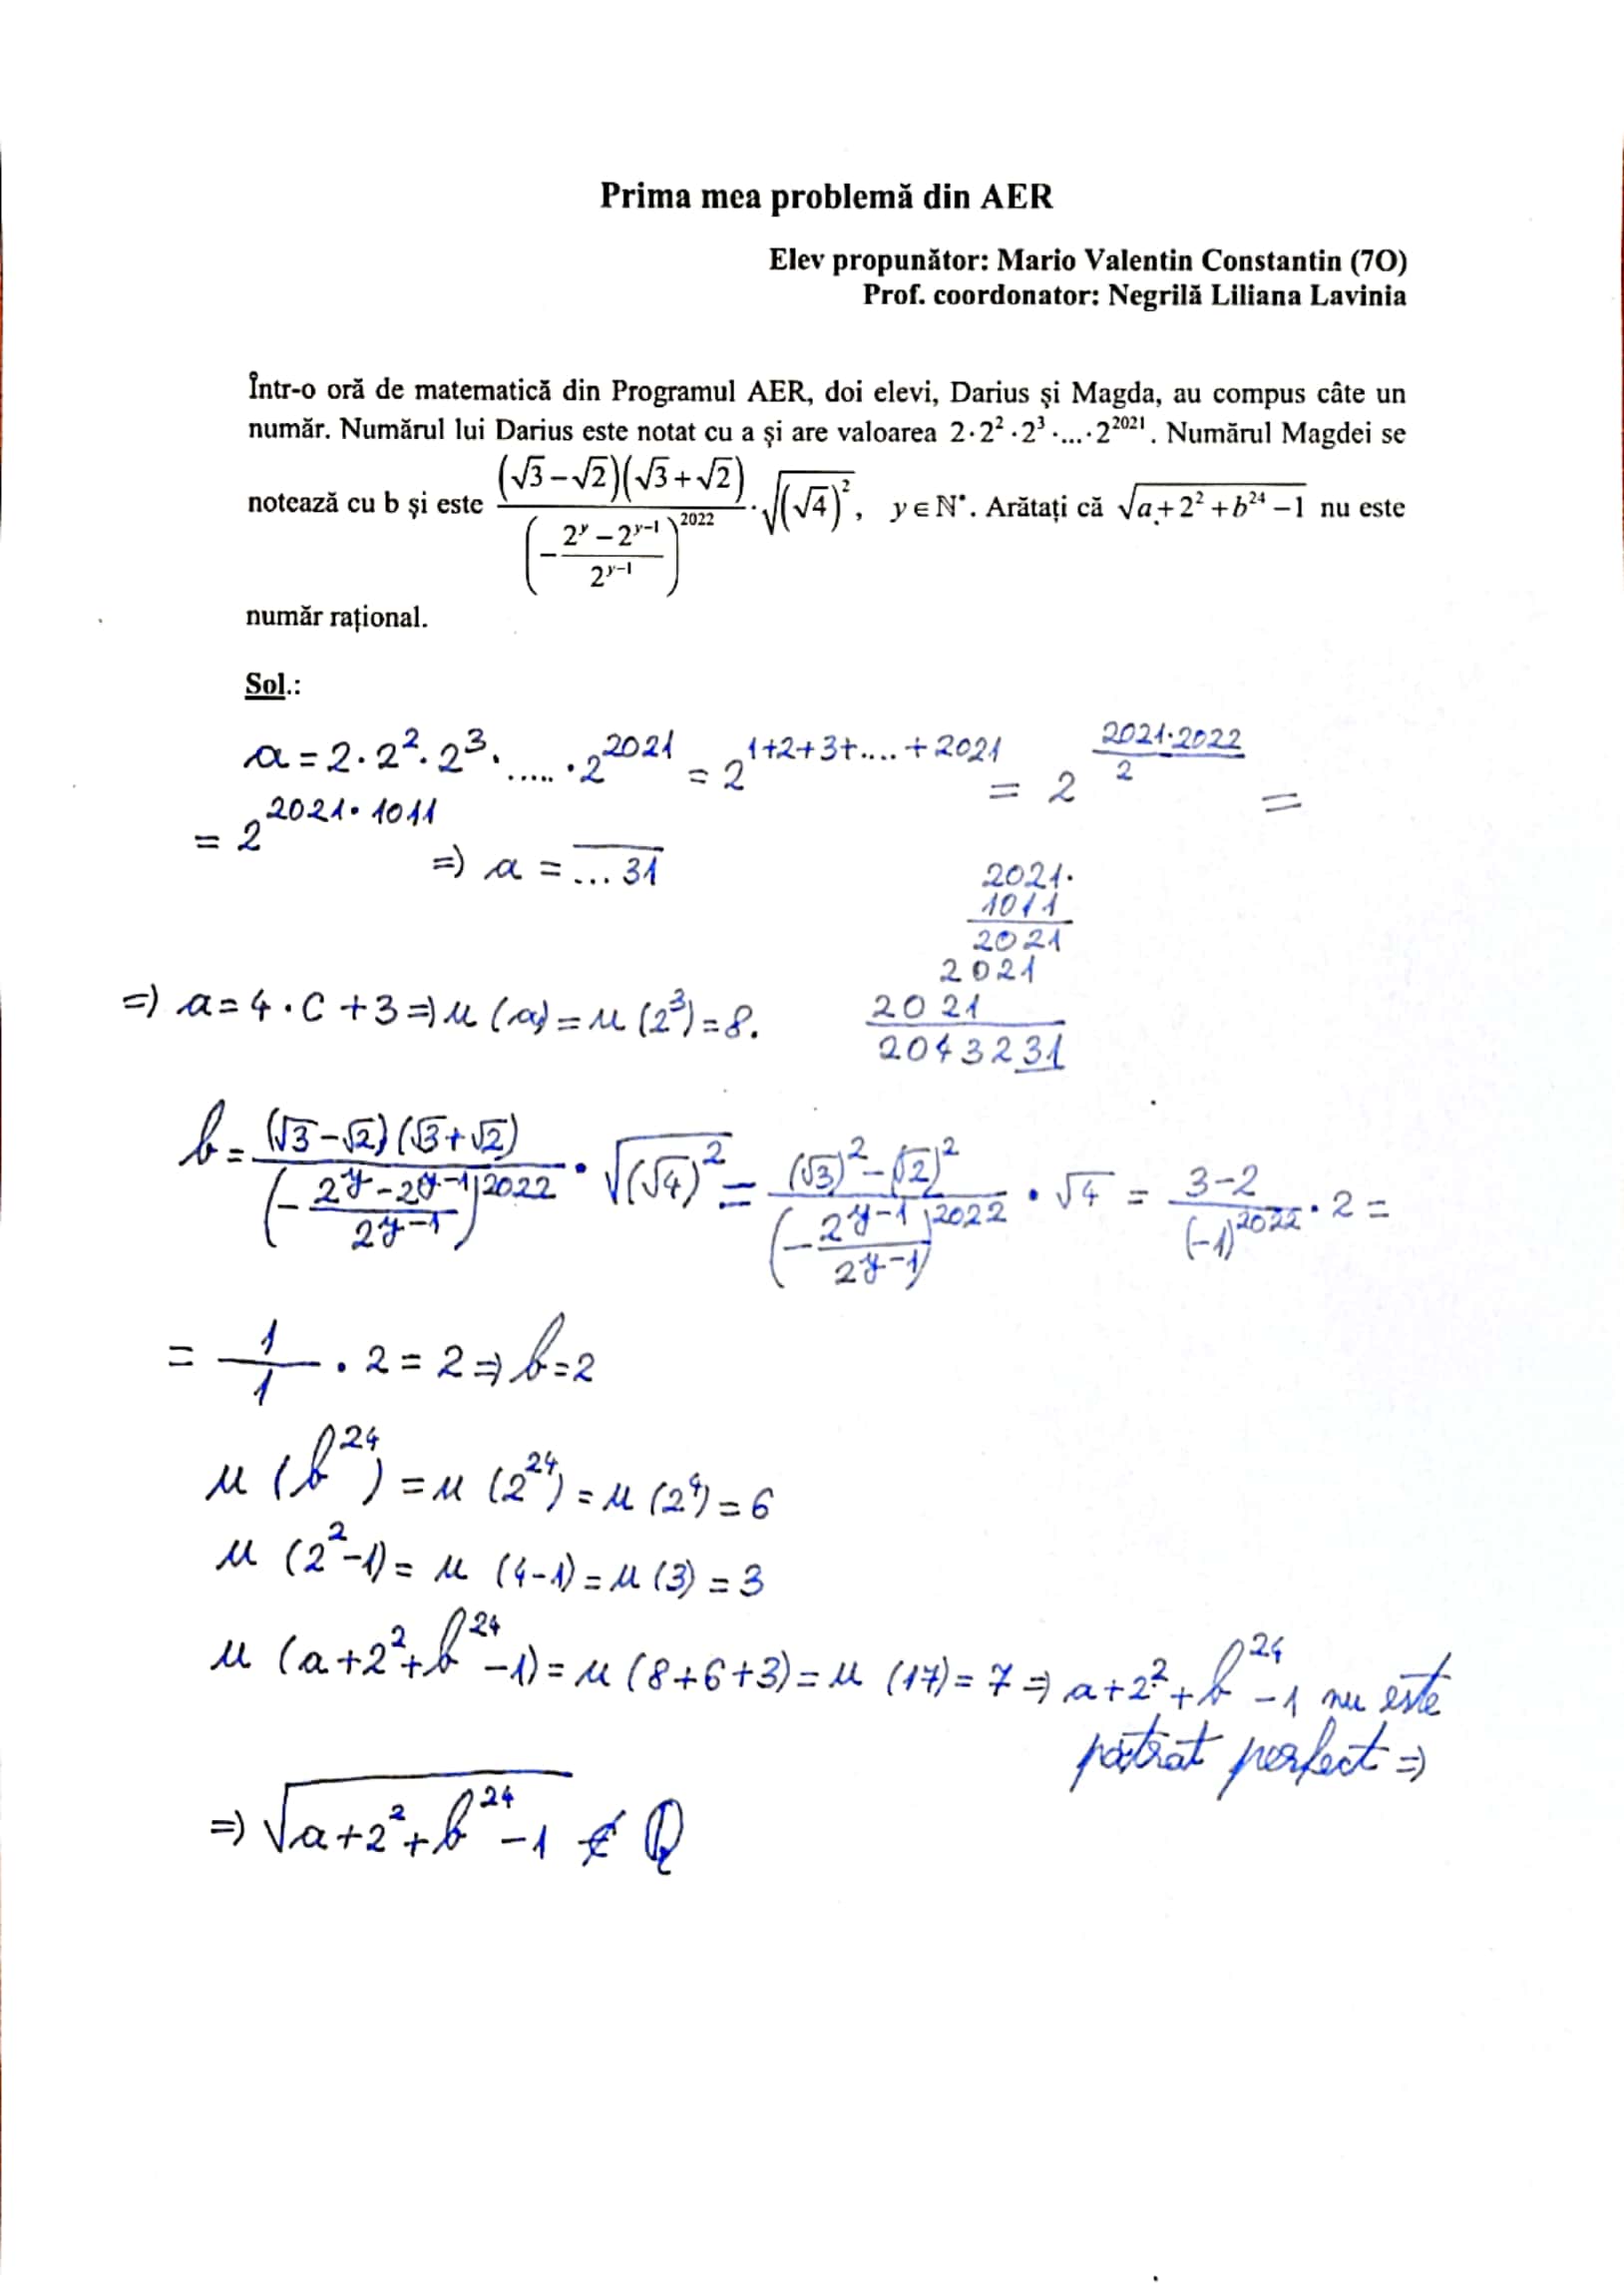 Prima mea problemă din AER
Elev propunător: Mario Valentin Constantin (7O)
Prof. coordonator: Negrilă Liliana Lavinia
Într-o oră de matematică din Programul AER, doi elevi, Darius și Magda, au compus câte un
număr. Numărul lui Darius este notat cu a și are valoarea 2·2²·2³·...·2^2021. Numărul Magdei se
notează cu b și este (√3−√2)(√3+√2) / (−(2^y−2^(y−1))/2^(y−1))^2022 · √((√4)²), y∈ℕ*. Arătați că √(a+2²+b^24−1) nu este
număr rațional.
Sol.:
a = 2·2²·2³·.....·2^2021 = 2^(1+2+3+....+2021) = 2^(2021·2022/2) =
= 2^(2021·1011) ⇒ a = ...31
2021·
1011
2021
2021
2021
2043231
⇒ a = 4·C+3 ⇒ u(a) = u(2³) = 8.
b = (√3−√2)(√3+√2) / (−(2^y−2^(y−1))/2^(y−1))^2022 · √((√4)²) = ((√3)²−(√2)²) / (−2^(y−1)/2^(y−1))^2022 · √4 = (3−2)/(−1)^2022 · 2 =
= 1/1 · 2 = 2 ⇒ b = 2
u(b^24) = u(2^24) = u(2^4) = 6
u(2²−1) = u(4−1) = u(3) = 3
u(a+2²+b^24−1) = u(8+6+3) = u(17) = 7 ⇒ a+2²+b^24−1 nu este
pătrat perfect ⇒
⇒ √(a+2²+b^24−1) ∉ ℚ